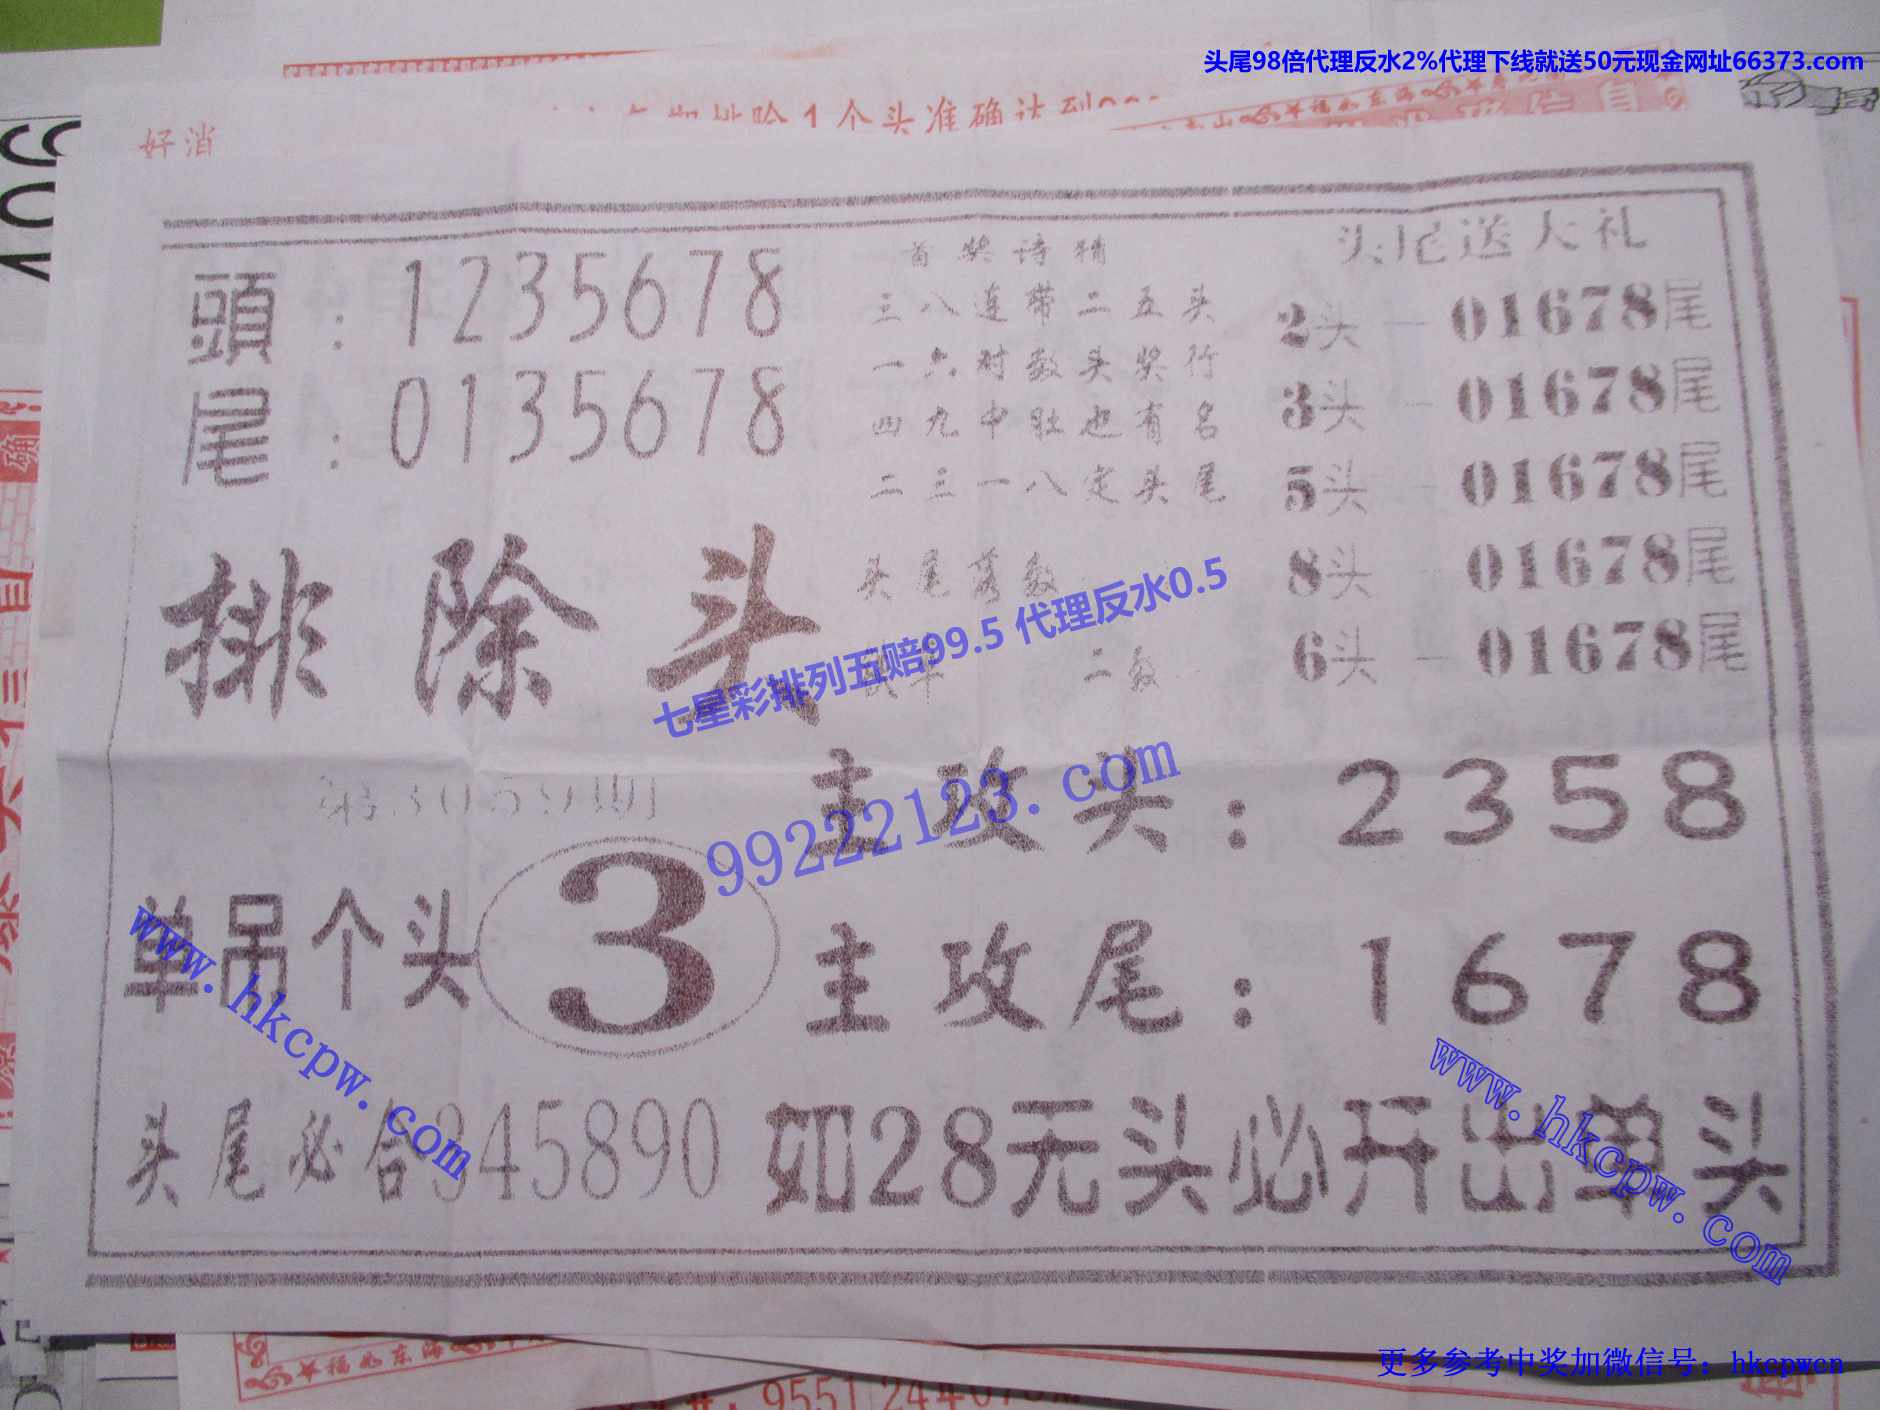 头尾98倍代理反水2%代理下线就送50元现金网址66373.com
好消
个头准确达到
頭：1235678
尾：0135678
首奖诗精
三八连带二五头
一六对数头奖行
四九中肚也有名
二三一八定头尾
头尾送大礼
2头－01678尾
3头－01678尾
5头－01678尾
8头－01678尾
6头－01678尾
排除头
头尾落数
二数
七星彩排列五赔99.5 代理反水0.5
99222123.com
第3059期
单吊个头 3
主攻头：2358
主攻尾：1678
www.hkcpw.com
www.hkcpw.com
头尾必合345890
如28无头必开出单头
福如东海
更多参考中奖加微信号：hkcpwcn